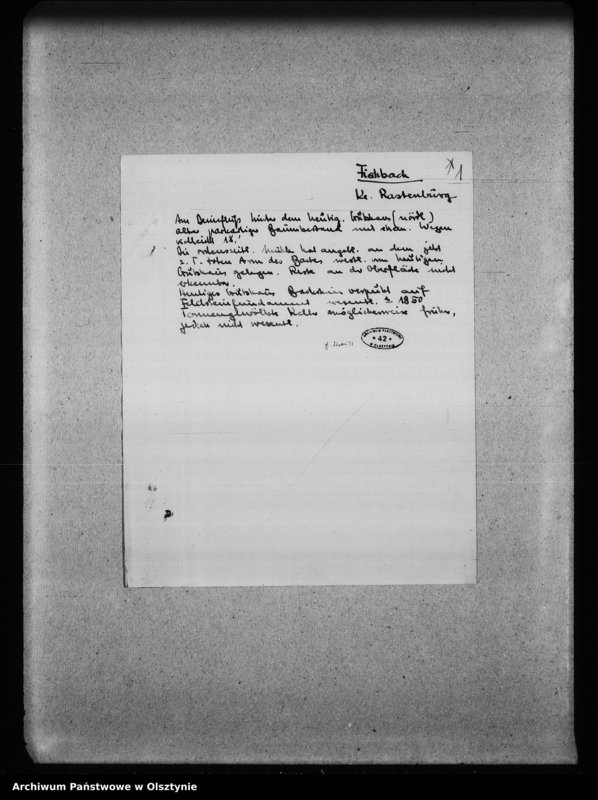 Fischbach
1
Kr. Rastenburg
Am Deineflüß hinter dem heutig. Gutshaus (nördl.)
alter parkartiger Baumbestand
vielleicht 18.
Die ordenszeitl. Mühle hat angebl. an dem jetzt
z. T. toten Arm des Baches westl. vom heutigen
Gutshaus gelegen. Reste an der Oberfläche nicht
erkennbar.
Heutiges Gutshaus Backstein verputzt auf
Feldsteinfundament wesentl. 1850
Tonnengewölbte Keller möglicherweise früher,
jedoch nicht wesentl.
ARCHIWUM PAŃSTWOWE
* 42 *
W OLSZTYNIE
Archiwum Państwowe w Olsztynie